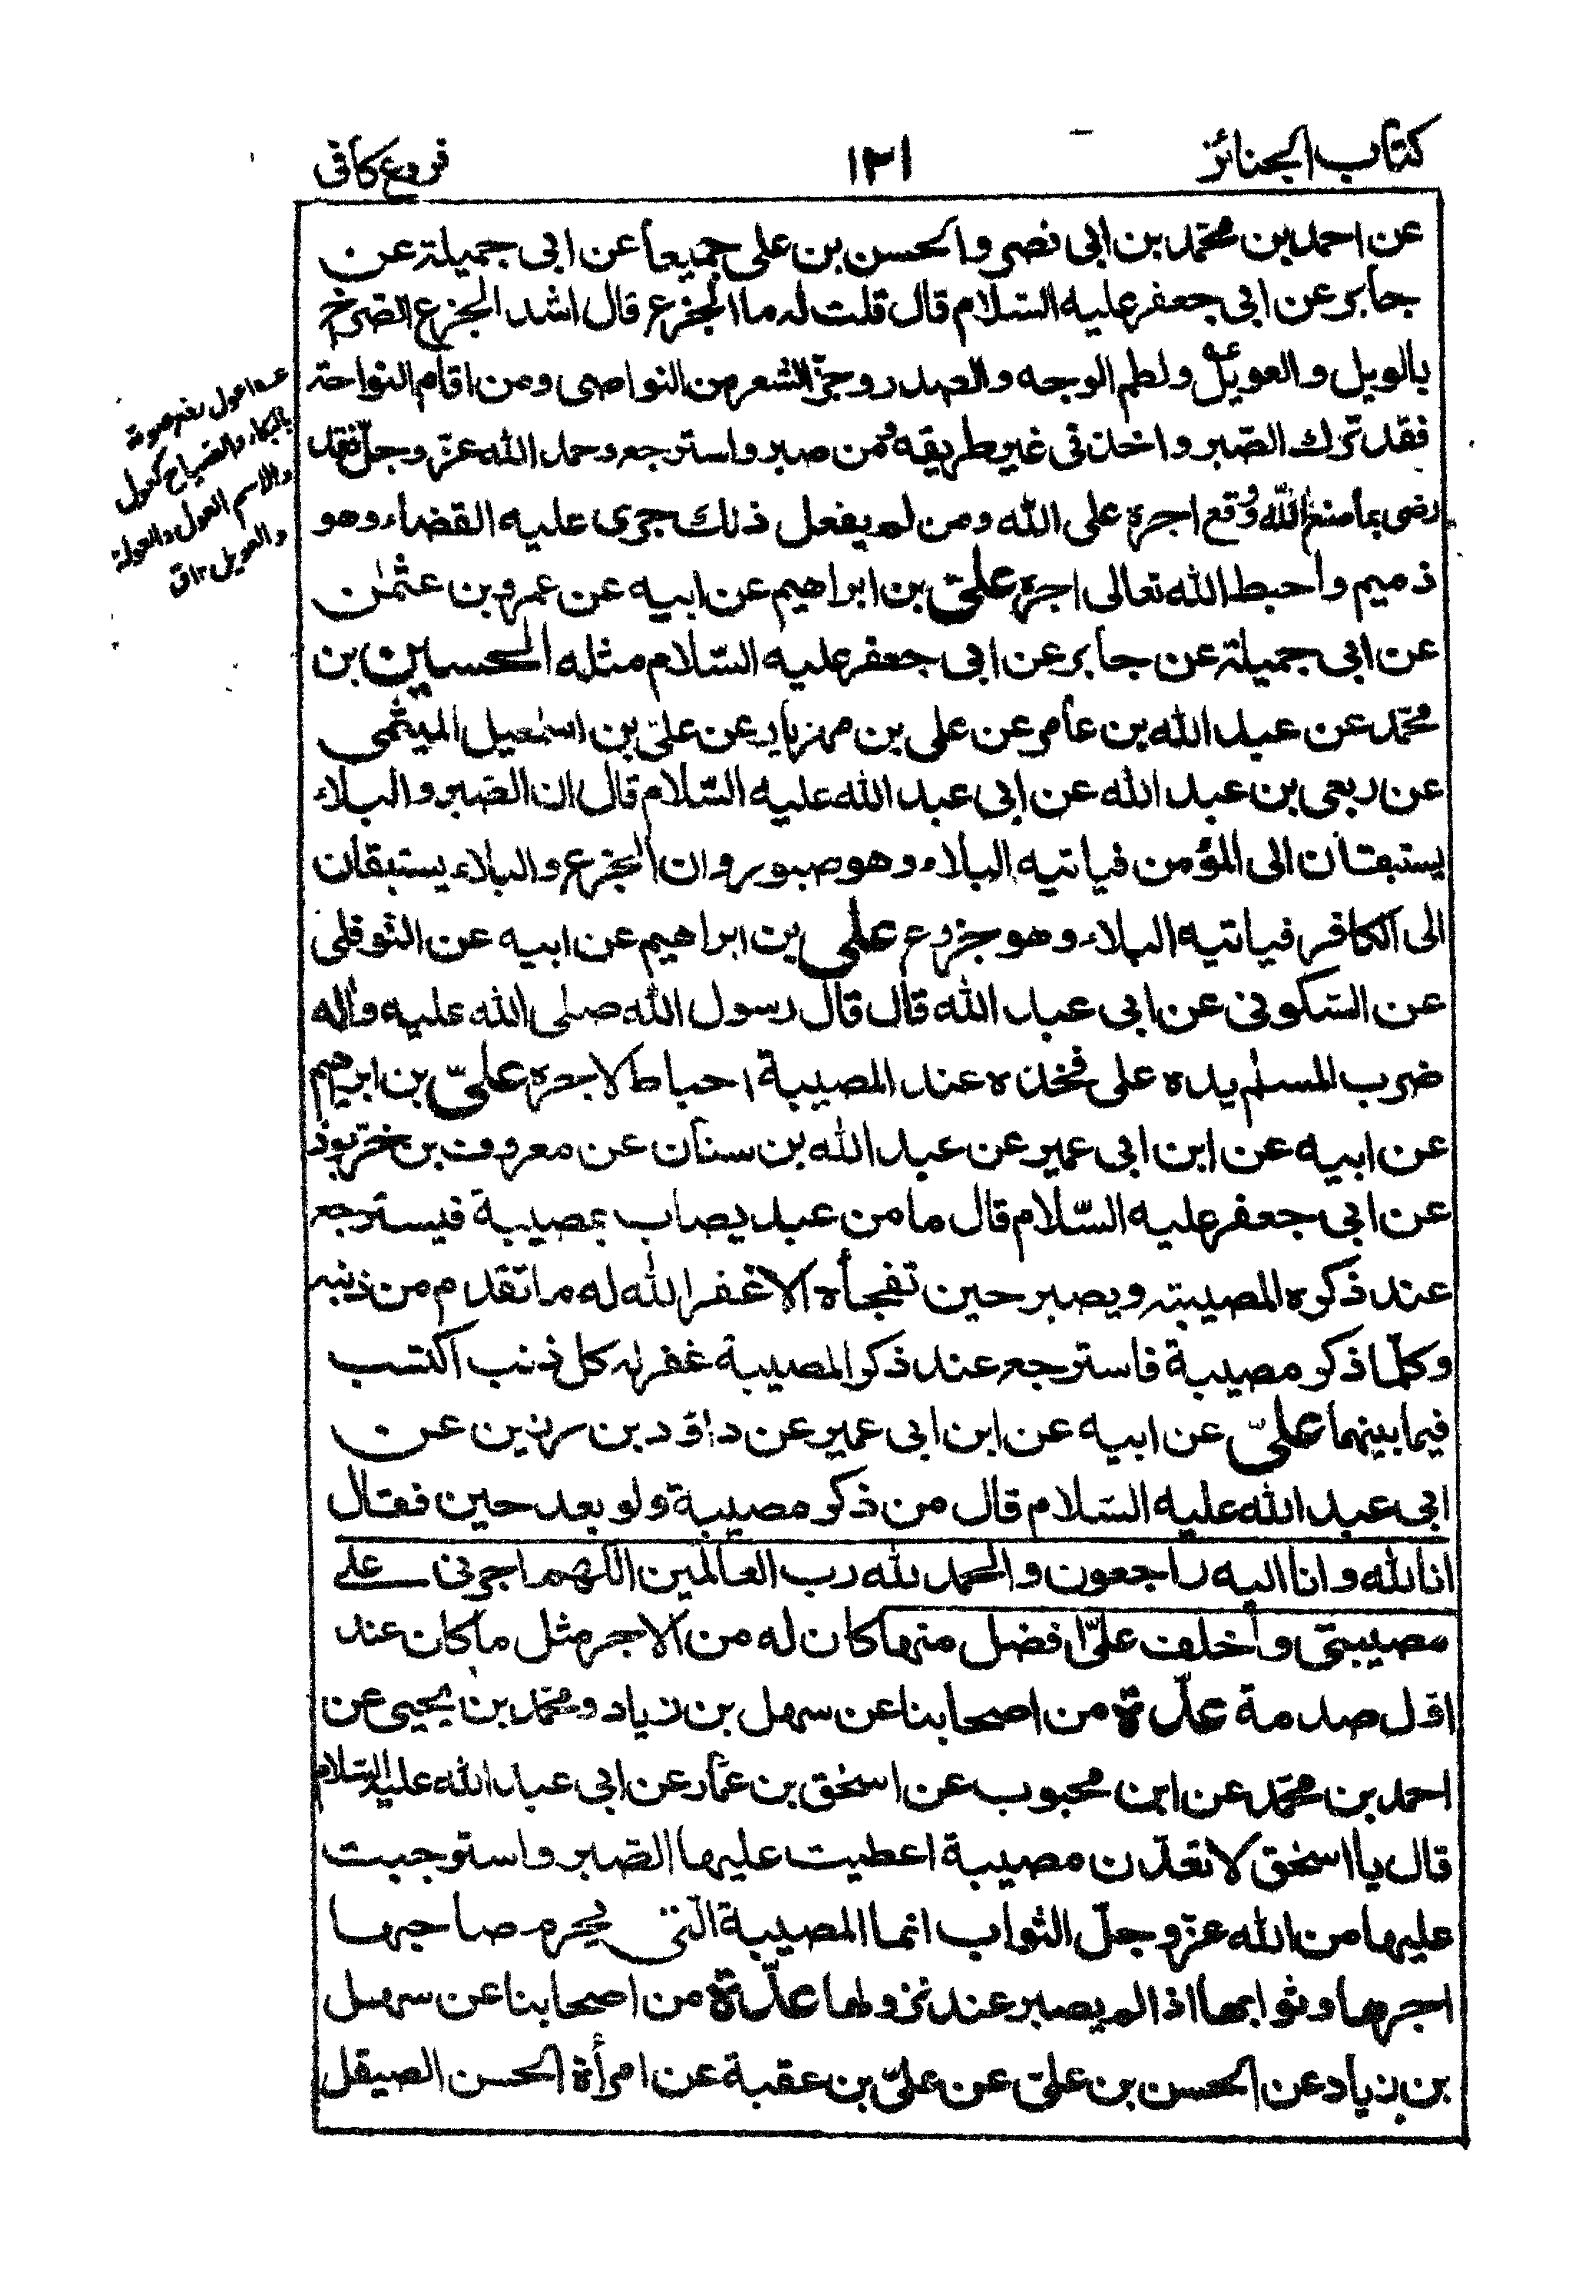 كتاب الجنائز ١٢١ فروع كافى
عن احمد بن محمّد بن ابى نصر و الحسن بن على جميعا عن ابى جميلة عن
جابر عن ابى جعفر عليه السّلام قال قلت له ما الجزع قال اشد الجزع الصّرخ
بالويل و العويل و لطم الوجه و الصدر و جزّ الشعر من النواصى و من اقام النواحة
فقد ترك الصّبر و اخذ فى غير طريقه و من صبر و استرجع و حمد الله عزّ و جلّ فقد
رضى بما صنع الله و وقع اجره على الله و من لم يفعل ذلك جرى عليه القضاء و هو
ذميم و احبط الله تعالى اجره علىّ بن ابراهيم عن ابيه عن عمرو بن عثمٰن
عن ابى جميلة عن جابر عن ابى جعفر عليه السّلام مثله الحسين بن
محمّد عن عبد الله بن عامر عن على بن مهزيار عن علىّ بن اسمٰعيل الميثمى
عن ربعى بن عبد الله عن ابى عبد الله عليه السّلام قال ان الصّبر و البلاء
يستبقان الى المؤمن فياتيه البلاء و هو صبور و ان الجزع و البلاء يستبقان
الى الكافر فياتيه البلاء و هو جزوع على بن ابراهيم عن ابيه عن النوفلى
عن السّكونى عن ابى عبد الله قال قال رسول الله صلى الله عليه و اله
ضرب المسلم يده على فخذه عند المصيبة احباط لاجره علىّ بن ابرهيم
عن ابيه عن ابن ابى عمير عن عبد الله بن سنان عن معروف بن خرّبوذ
عن ابى جعفر عليه السّلام قال ما من عبد يصاب بمصيبة فيسترجع
عند ذكره المصيبته و يصبر حين تفجأه الا غفر الله له ما تقدم من ذنبه
و كلّما ذكر مصيبة فاسترجع عند ذكر المصيبة غفر له كل ذنب اكتسب
فيما بينهما علىّ عن ابيه عن ابن ابى عمير عن داؤد بن رزين عن
ابى عبد الله عليه السّلام قال من ذكر مصيبة و لو بعد حين فقال
انا لله و انا اليه راجعون و الحمد لله رب العالمين اللهم اجرنى على
مصيبتى و اخلف علىّ افضل منها كان له من الاجر مثل ما كان عند
اوّل صدمة عدّة من اصحابنا عن سهل بن زياد و محمّد بن يحيى عن
احمد بن محمّد عن ابن محبوب عن اسحٰق بن عمّار عن ابى عبد الله عليه السّلام
قال يا اسحٰق لا تعدّن مصيبة اعطيت عليها الصّبر و استوجبت
عليها من الله عزّ و جلّ الثواب انما المصيبة الّتى يحرم صاحبها
اجرها و ثوابها اذا لم يصبر عند نزولها عدّة من اصحابنا عن سهل
بن زياد عن الحسن بن علىّ عن علىّ بن عقبة عن امرأة الحسن الصيقل
عه اعول رفع صوته
بالبكاء و الصياح كعول
و الاسم العول و العولة
و العويل ١٢ ق